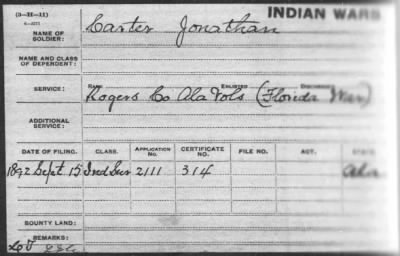 (3-H-11)
INDIAN WARS
NAME OF SOLDIER: Carter Jonathan
NAME AND CLASS OF DEPENDENT:
SERVICE: RANK ENLISTED DISCHARGED
Rogers Co Ala Vols (Florida War)
ADDITIONAL SERVICE:
DATE OF FILING. CLASS. APPLICATION No. CERTIFICATE No. FILE NO. ACT. STATE
1892 Sept. 15 Ind Sur 2111 314 Ala
BOUNTY LAND:
REMARKS: